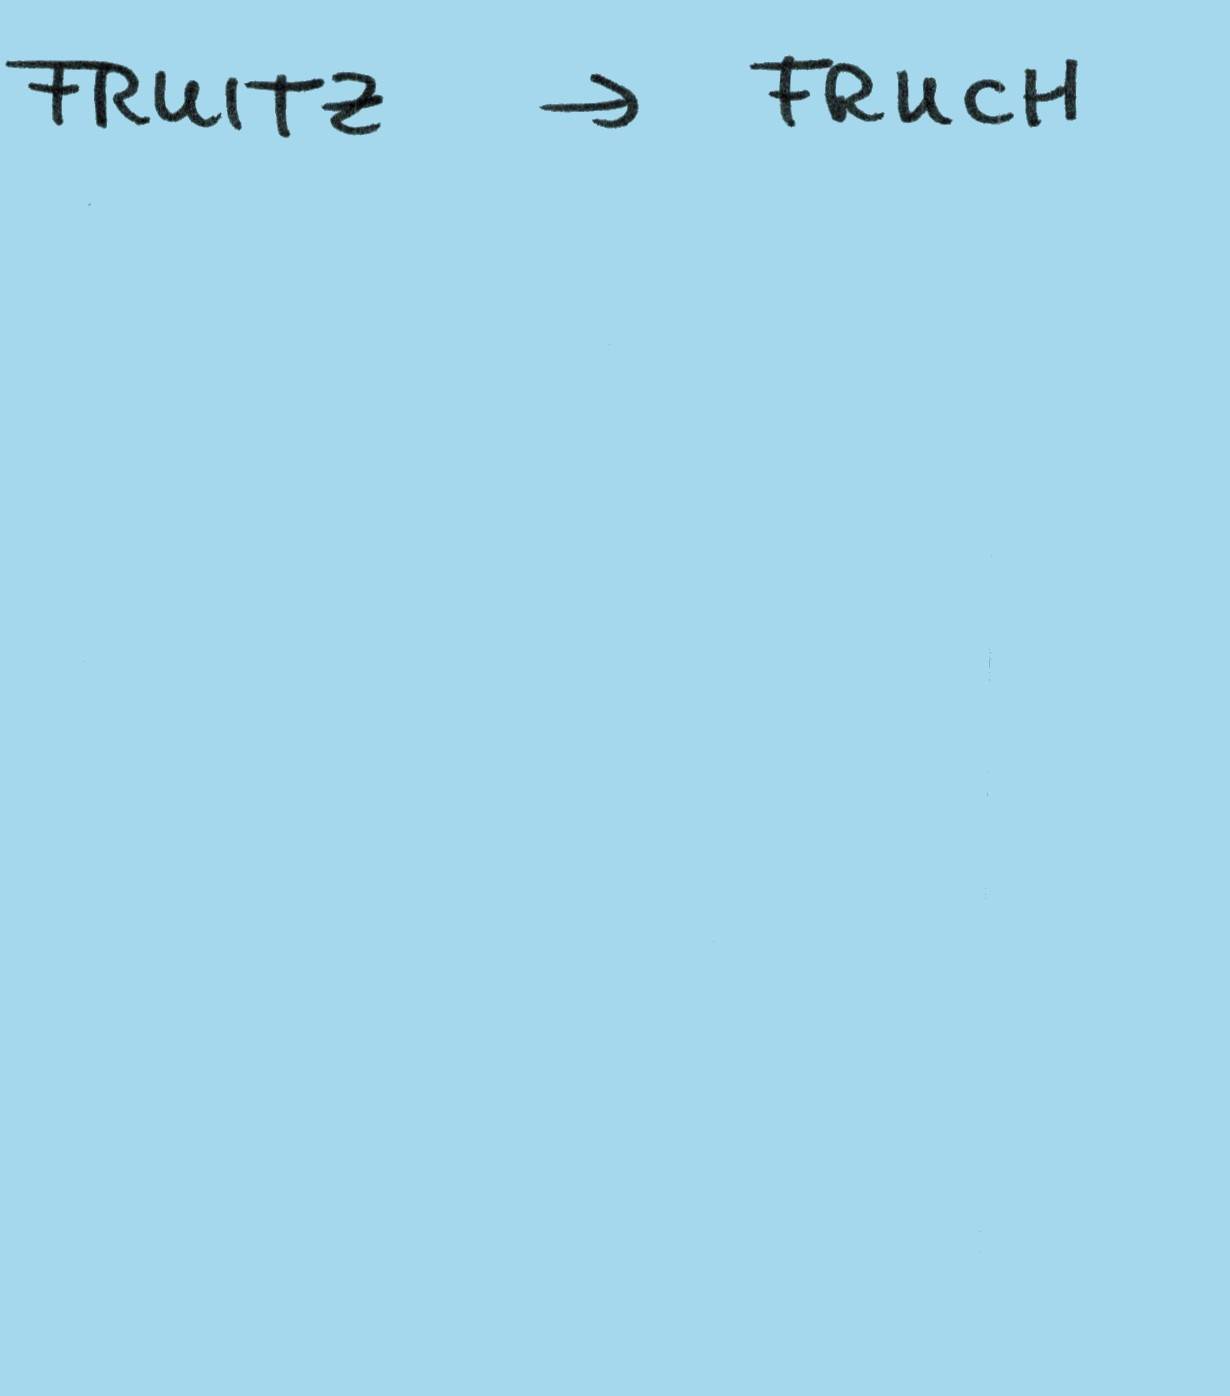 FRUITZ → FRUCH